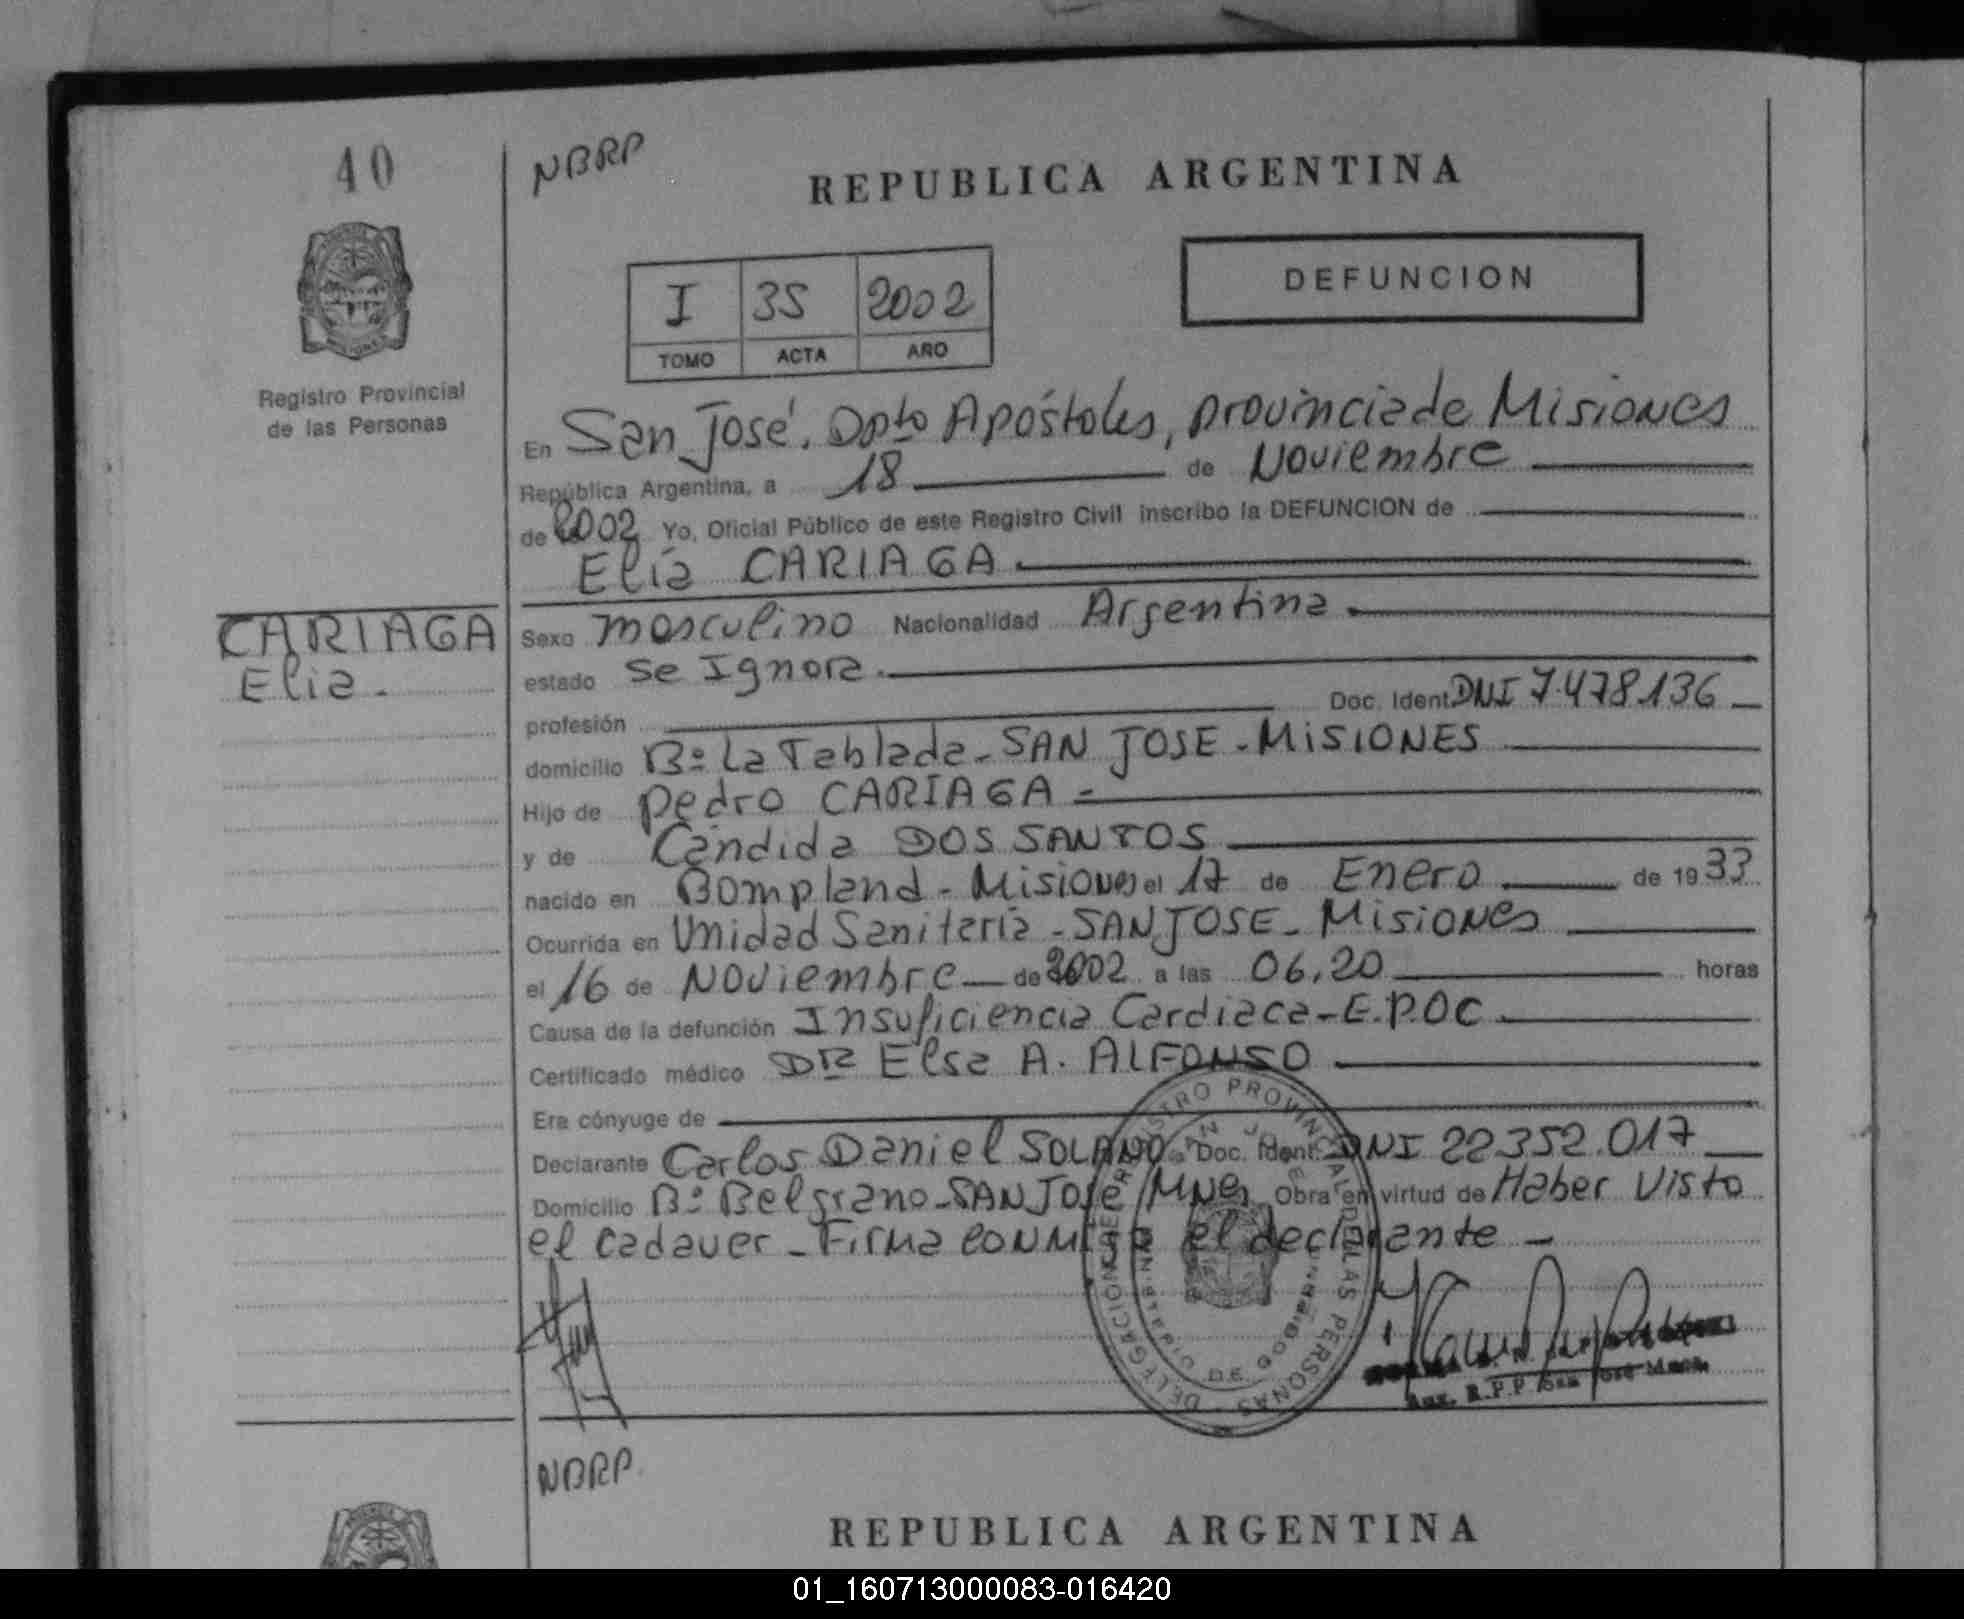 40
NBRP
REPUBLICA ARGENTINA
DEFUNCION
I 35 2002
TOMO ACTA AÑO
Registro Provincial
de las Personas
En San José, Dpto Apóstoles, provincia de Misiones
República Argentina, a 18 de Noviembre
de 2002 Yo, Oficial Público de este Registro Civil inscribo la DEFUNCION de
Elía CARIAGA
CARIAGA
Elia.
Sexo masculino Nacionalidad Argentina
estado se Ignora.
profesión Doc. Ident. DNI 7.478.136
domicilio Bº La Tablada - SAN JOSE - MISIONES
Hijo de Pedro CARIAGA
y de Cándida DOS SANTOS
nacido en Bompland - Misiones el 17 de Enero de 1933
Ocurrida en Unidad Sanitaria - SAN JOSE - Misiones
el 16 de Noviembre de 2002 a las 06,20 horas
Causa de la defunción Insuficiencia Cardiaca - E.P.OC
Certificado médico Dra Elsa A. ALFONSO
Era cónyuge de
Declarante Carlos Daniel SOLANO Doc. Ident. DNI 22.352.017
Domicilio Bº Belgrano - SAN JOSE /MNES Obra en virtud de Haber visto
el cadaver - Firma conmigo el declarante -
REGISTRO PROVINCIAL DE LAS PERSONAS - DELEGACION
SAN JOSE
Aux. R.P.P San José Mnes.
NBRP.
REPUBLICA ARGENTINA
01_160713000083-016420